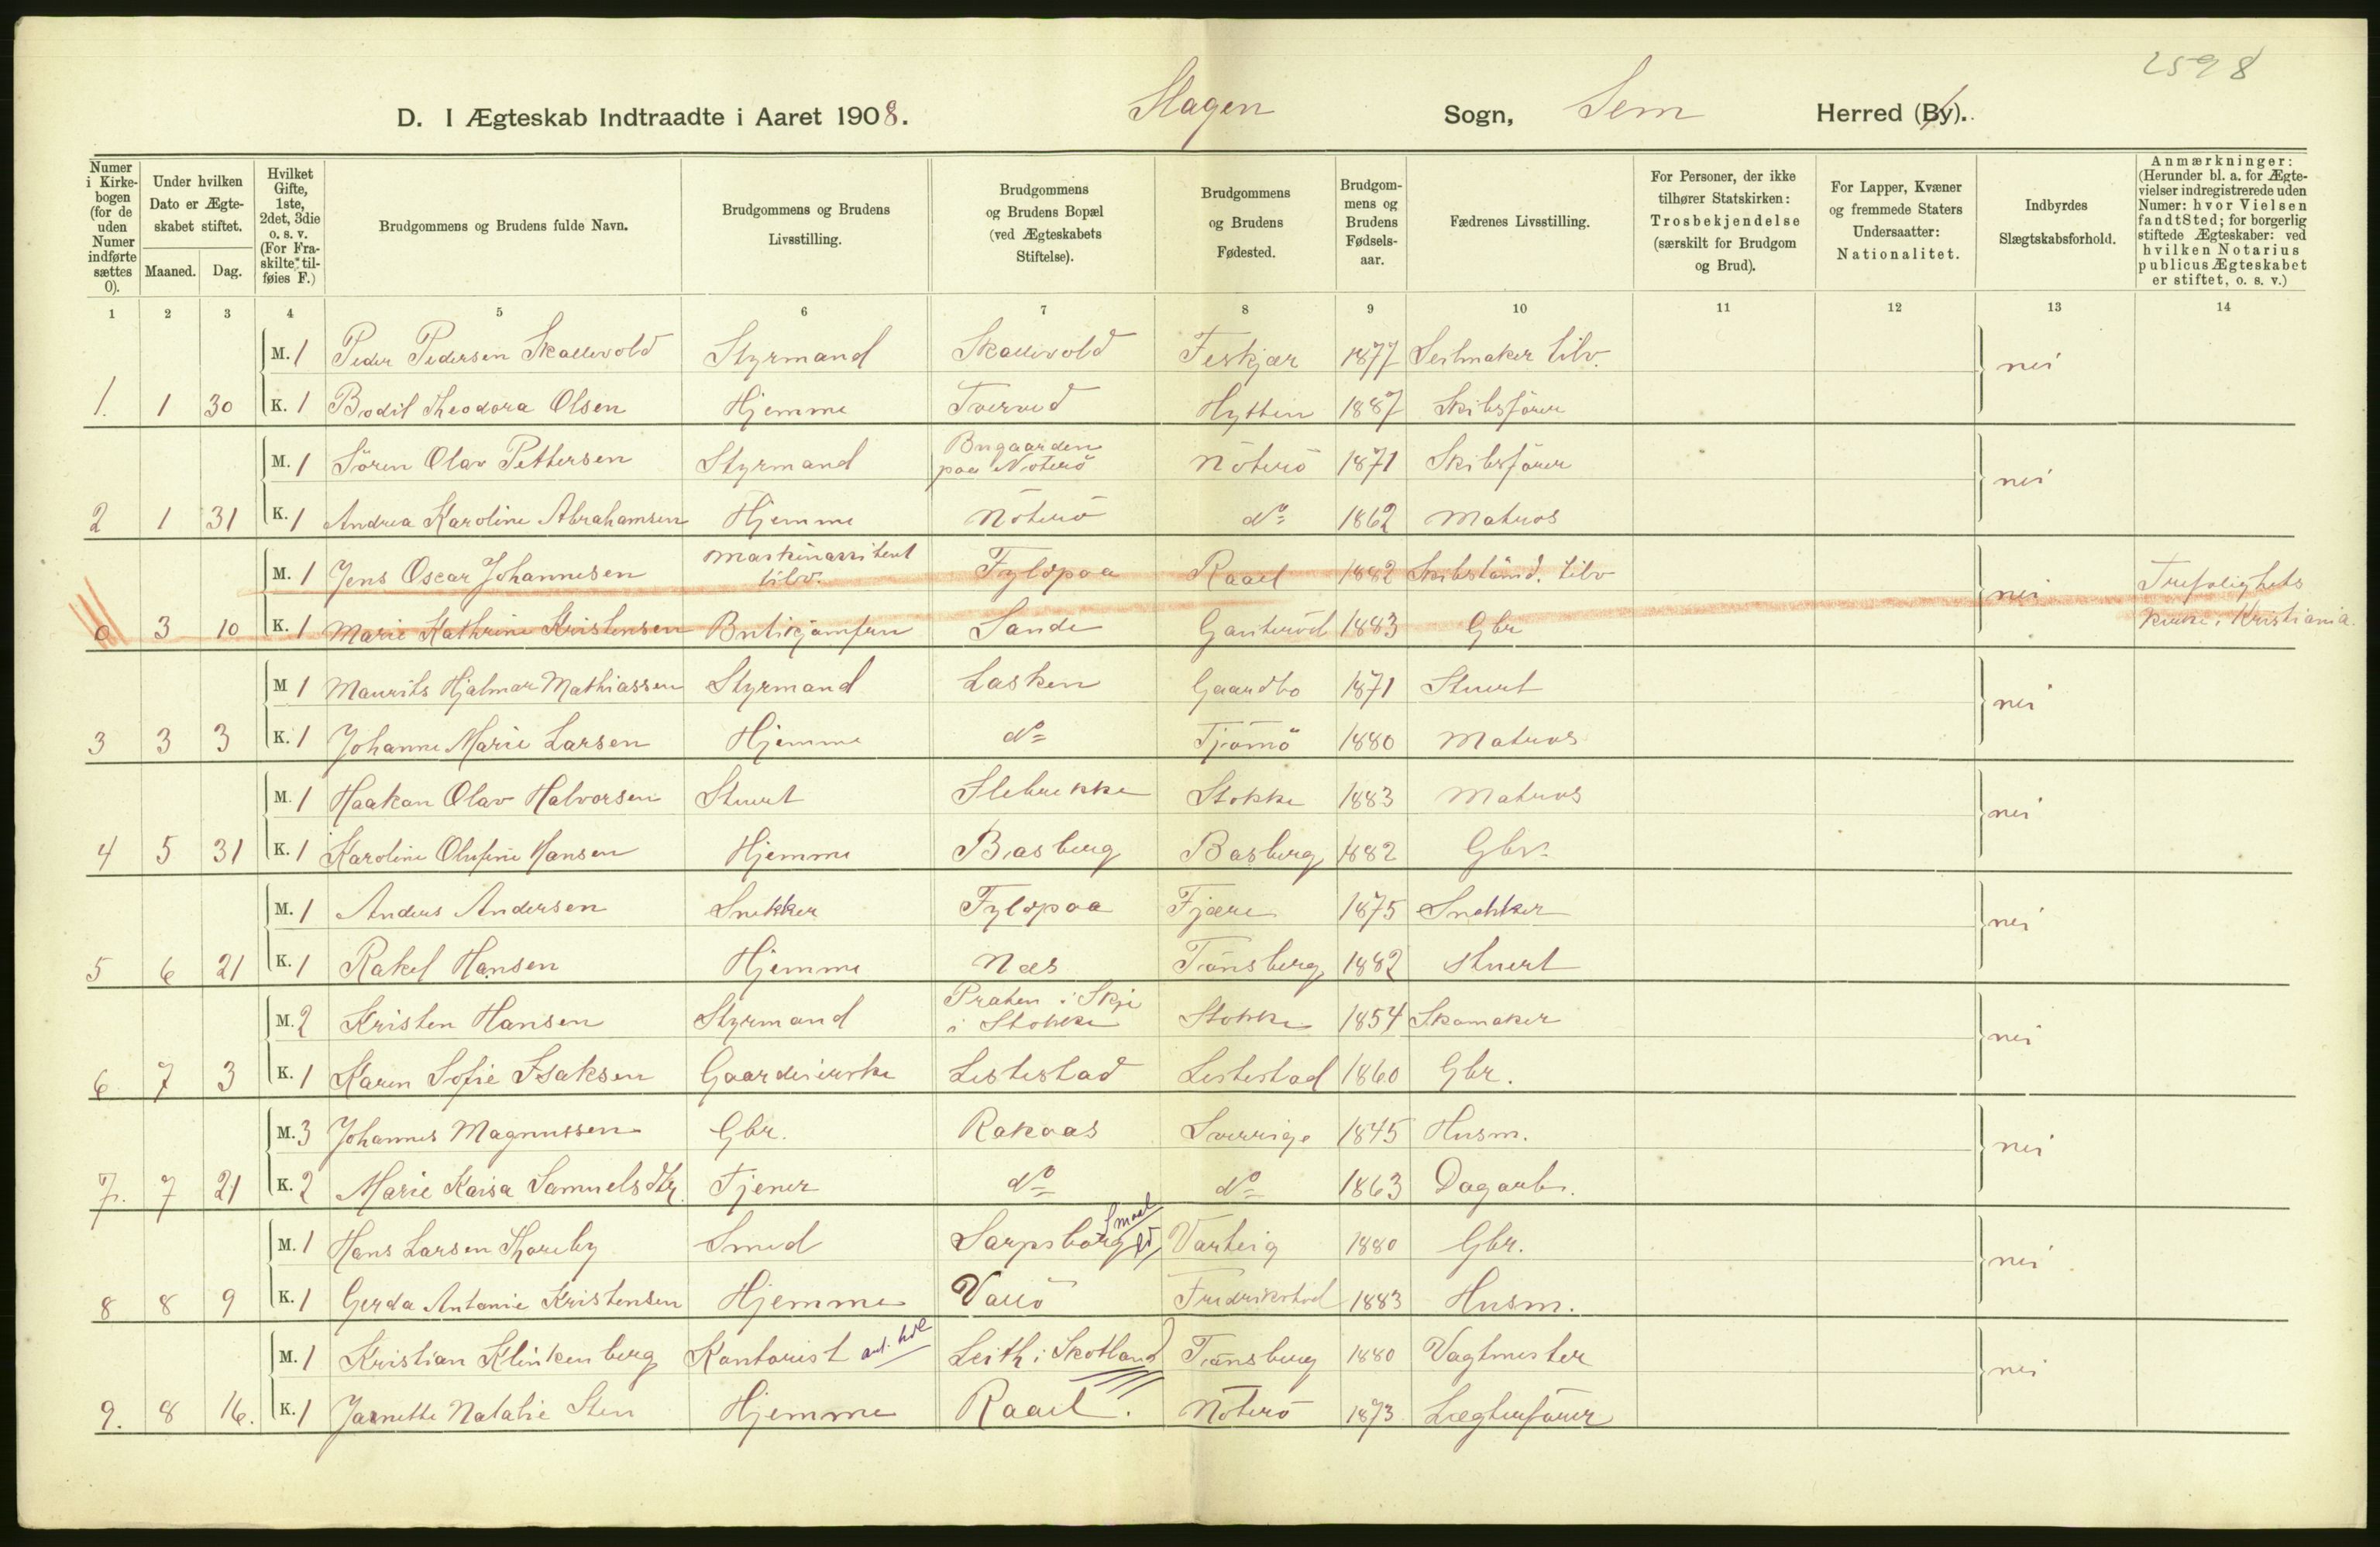 2598
D. I Ægteskab Indtraadte i Aaret 1908. Slagen Sogn, Sem Herred (By).
Numer i Kirkebogen (for de uden Numer indførte sættes 0).
Under hvilken Dato er Ægteskabet stiftet.
Maaned. Dag.
Hvilket Gifte, 1ste, 2det, 3die o. s. v. (For Fraskilte tilføies F.)
Brudgommens og Brudens fulde Navn.
Brudgommens og Brudens Livsstilling.
Brudgommens og Brudens Bopæl (ved Ægteskabets Stiftelse).
Brudgommens og Brudens Fødested.
Brudgommens og Brudens Fødselsaar.
Fædrenes Livsstilling.
For Personer, der ikke tilhører Statskirken: Trosbekjendelse (særskilt for Brudgom og Brud).
For Lapper, Kvæner og fremmede Staters Undersaatter: Nationalitet.
Indbyrdes Slægtskabsforhold.
Anmærkninger: (Herunder bl. a. for Ægtevielser indregistrerede uden Numer: hvor Vielsen fandt Sted; for borgerlig stiftede Ægteskaber: ved hvilken Notarius publicus Ægteskabet er stiftet, o. s. v.)
1 2 3 4 5 6 7 8 9 10 11 12 13 14
M. 1 Peder Pedersen Skallevold Styrmand Skallevold Feskjær 1877 Seilmaker tilv. nei
1. 1 30 K. 1 Bodil Theodora Olsen Hjemme Tverved Hytten 1887 Skibsfører
M. 1 Sören Olav Pettersen Styrmand Brygaarden paa Nöterö Nöterö 1871 Skibsförer nei
2 1 31 K. 1 Andrea Karoline Abrahamsen Hjemme Nöterö do 1862 Matros
M. 1 Jens Oscar Johannesen Maskinassistent tilv. Fyldpaa Raael 1882 Skibstömd. tilv nei Trefoligheds
0 3 10 K. 1 Marie Kathrine Kristensen Butikjomfru Sande Gauterød 1883 Gbr kirke i Kristiania.
M 1 Maurits Hjalmar Mathiassen Styrmand Lasken Gaardbo 1871 Stuert nei
3 3 3 K. 1 Johanne Marie Larsen Hjemme do Tjömö 1880 Matros
M. 1 Haakon Olav Halvorsen Stuert Slebrekke Stokke 1883 Matros nei
4 5 31 K. 1 Karoline Olufine Hansen Hjemme Basberg Basberg 1882 Gbr.
M. 1 Anders Andersen Snekker Fyldpaa Fjære 1875 Snekker nei
5 6 21 K. 1 Rakel Hansen Hjemme Næs Tönsberg 1882 Stuert
M. 2 Kristen Hansen Styrmand Praten i Skje i Stokke Stokke 1854 Skomaker nei
6 7 3 K. 1 Karen Sofie Isaksen Gaardeierske Listestad Listestad 1860 Gbr.
M. 3 Johannes Magnussen Gbr. Rakaas Sverrige 1845 Husm. nei
7. 7 21 K. 2 Marie Kaisa Samuelsdtr. Tjener do do 1863 Dagarb.
M. 1 Hans Larsen Thoreby Smed Sarpsborg Smaal Varteig 1880 Gbr. nei
8 8 9 K. 1 Gerda Antonie Kristensen Hjemme Vallö Fredrikstad 1883 Husm.
M. 1 Kristian Klinkenberg Kontorist Leith i Skotland Tönsberg 1880 Vagtmester nei
9. 8 16. K. 1 Jarnette Natalie Sten Hjemme Raael. Nöterö 1873 Lægterförer